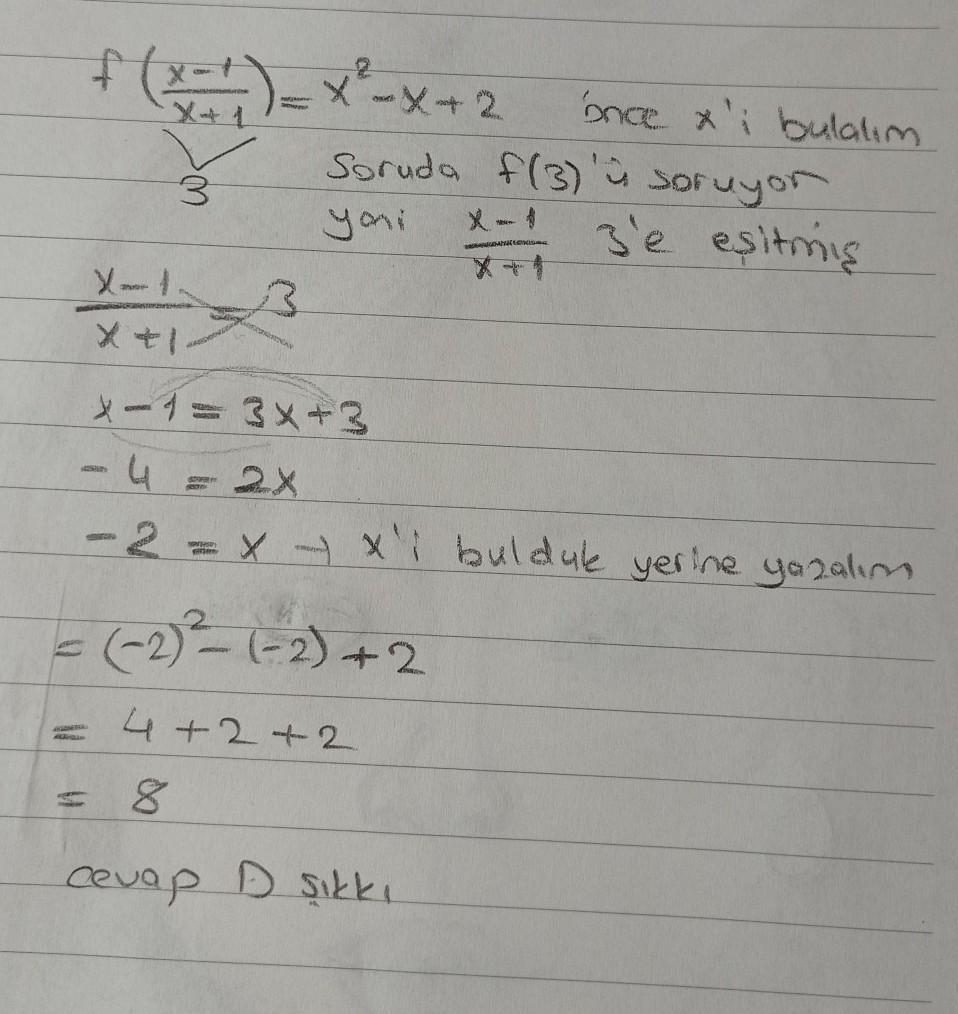 f(x-1/x+1) = x² - x + 2 önce x'i bulalım
3
Soruda f(3)'ü soruyor
yani x-1/x+1 3'e eşitmiş
x-1/x+1 = 3
x-1 = 3x+3
-4 = 2x
-2 = x → x'i bulduk yerine yazalım
= (-2)² - (-2) + 2
= 4+2+2
= 8
cevap D şıkkı